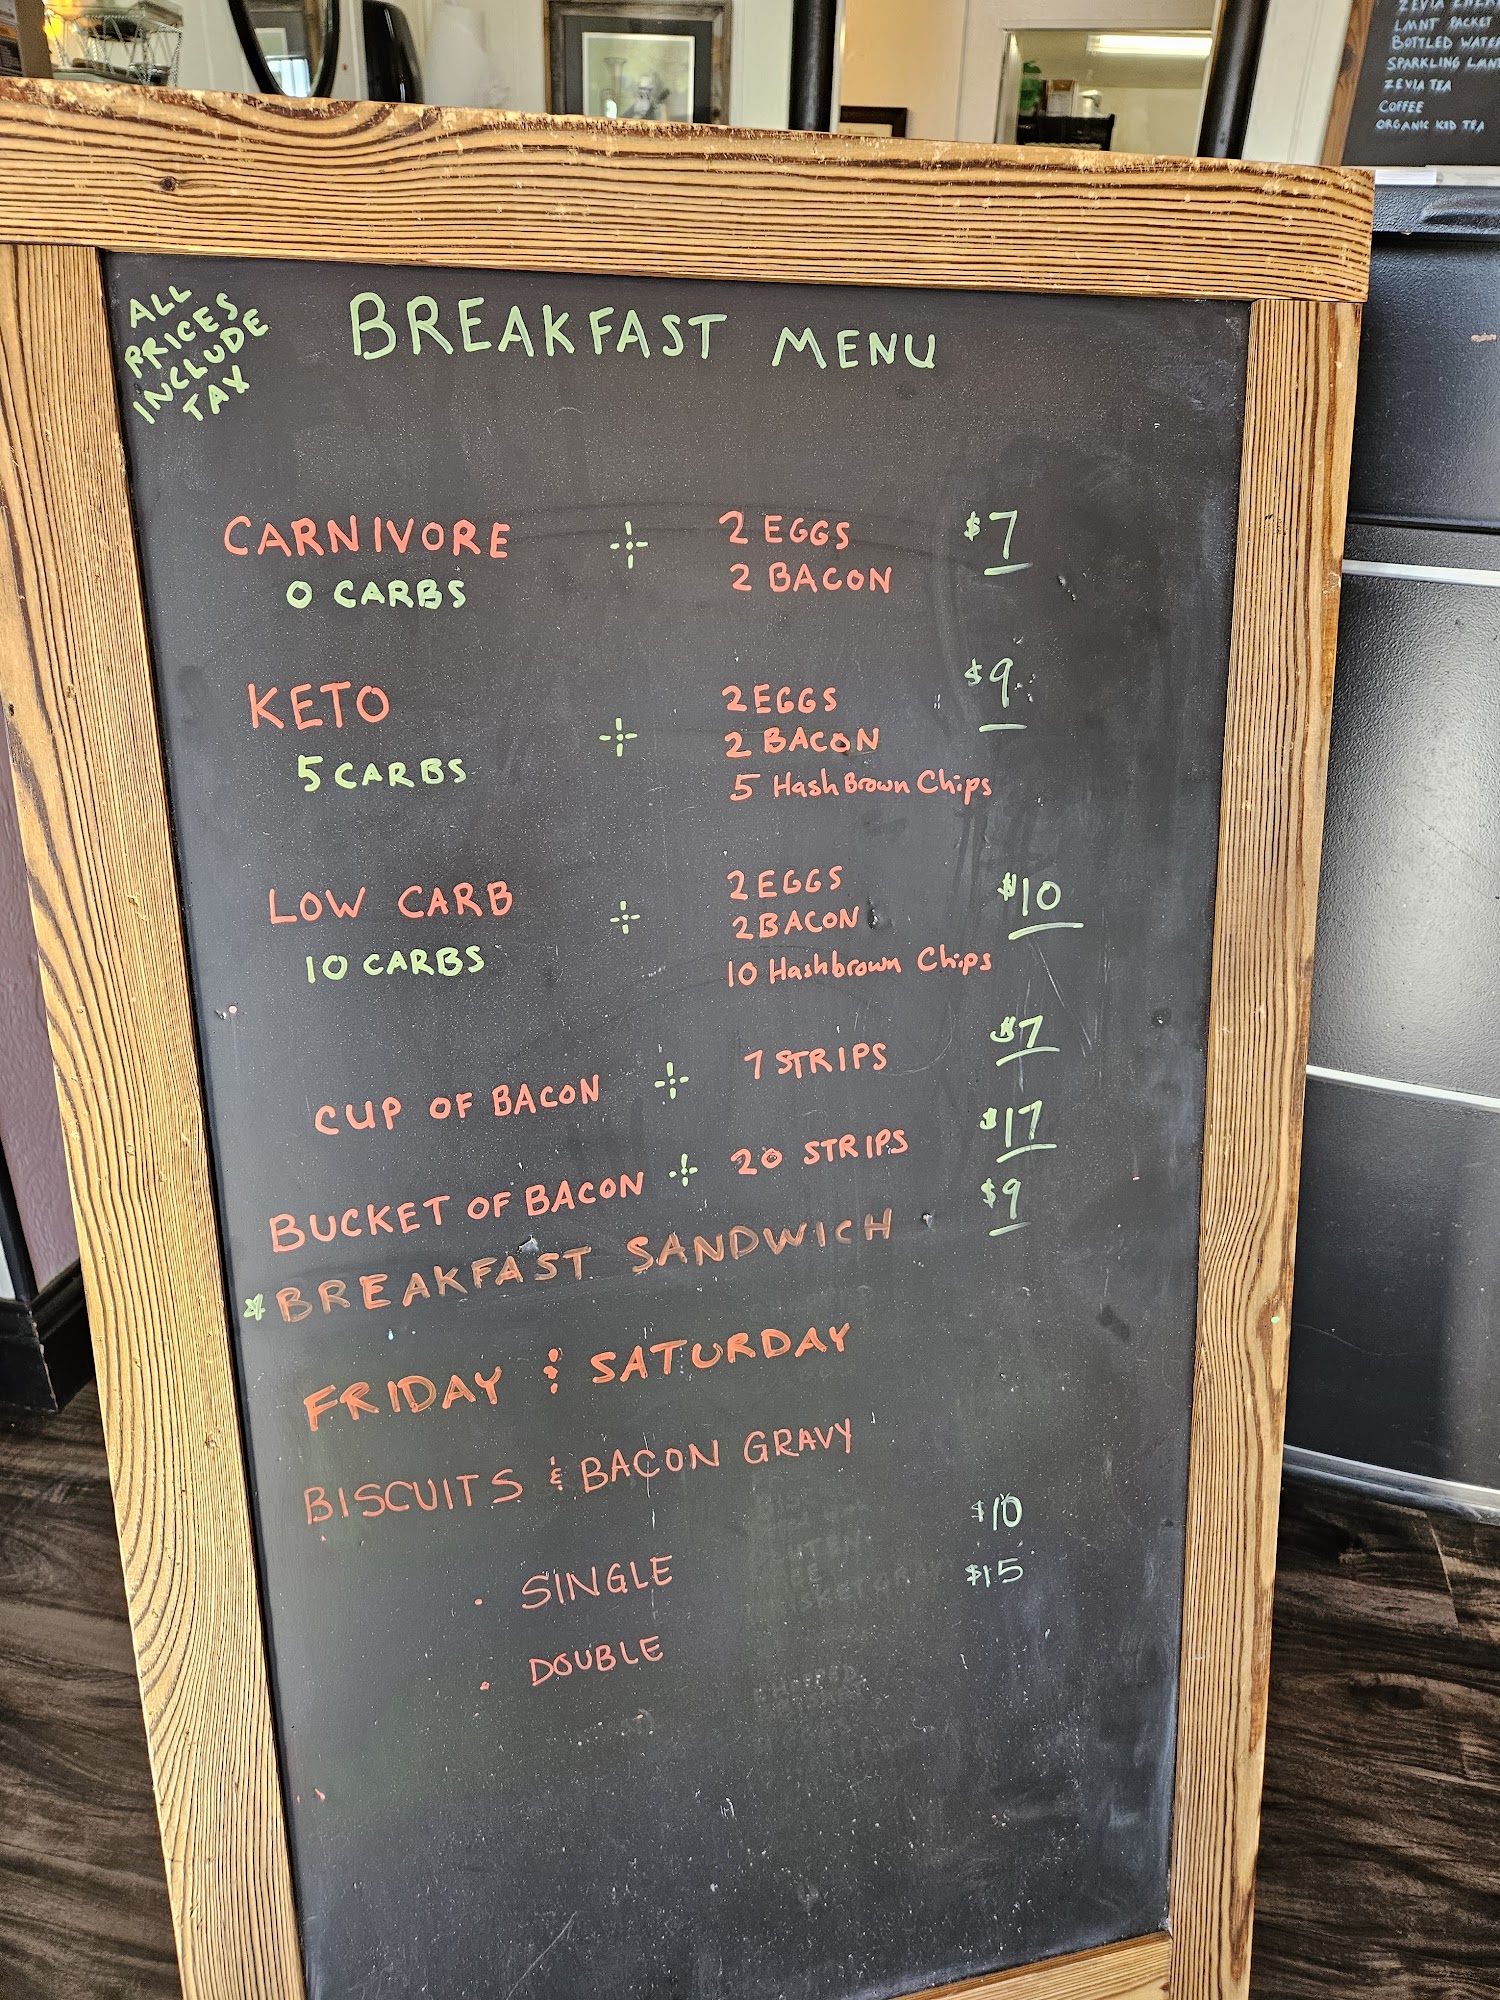 ZEVIA
LMNT PACKET
BOTTLED WATER
SPARKLING LMNT
ZEVIA TEA
COFFEE
ORGANIC ICED TEA
ALL
PRICES
INCLUDE
TAX
BREAKFAST MENU
CARNIVORE 2 EGGS $7
0 CARBS 2 BACON
KETO 2 EGGS $9
2 BACON
5 CARBS 5 Hash Brown Chips
LOW CARB 2 EGGS $10
2 BACON
10 CARBS 10 Hashbrown Chips
CUP OF BACON 7 STRIPS $7
BUCKET OF BACON 20 STRIPS $17
* BREAKFAST SANDWICH $9
FRIDAY & SATURDAY
BISCUITS & BACON GRAVY
• SINGLE $10
• DOUBLE $15